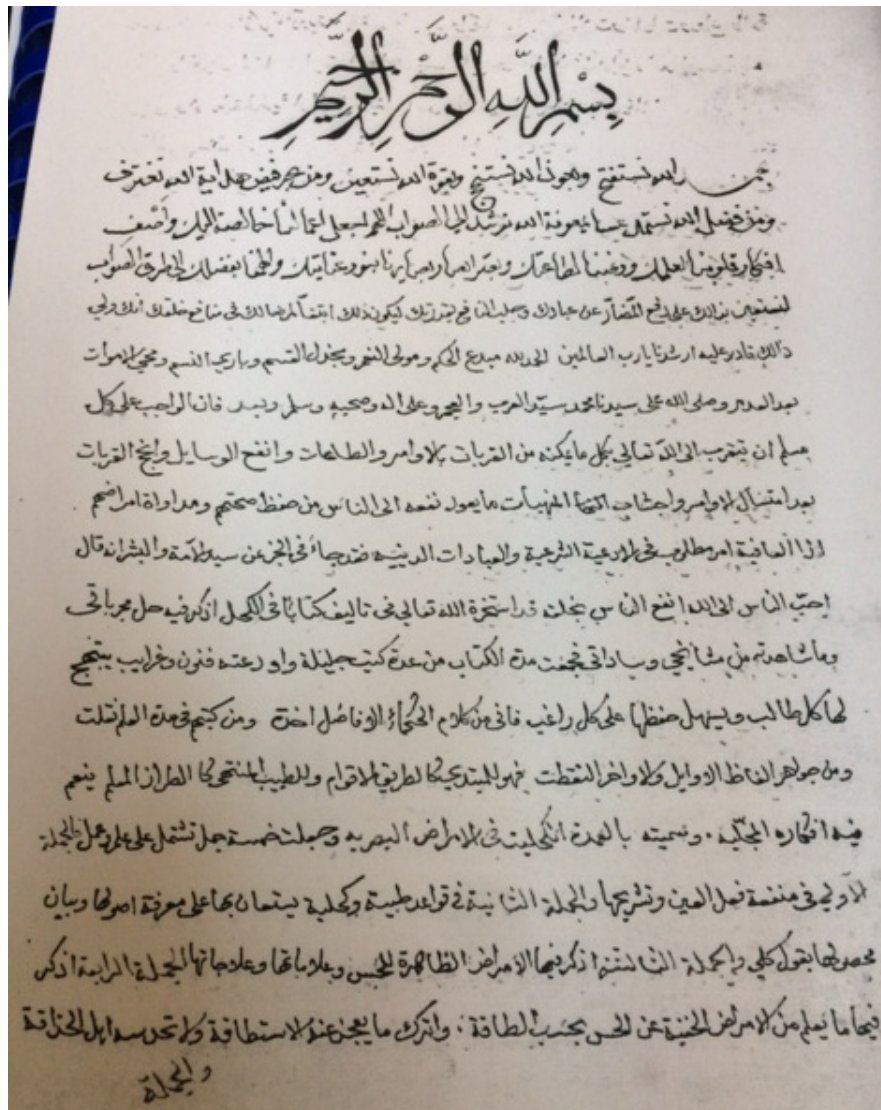 بِسْمِ اللَّهِ الرَّحْمٰنِ الرَّحِيمِ
الله نستفتح وبعون الله نستنجح وبقوة الله نستعين ومن بحر فيض هداية الله نغترف
ومن فضل الله نستمد وبمعرفة الله نرشد الى الصواب اللهم اجعل اعمالنا خالصة اليك واضف
افكار قلوبنا لعلمك ورغبنا لطاعتك بنور عنايتك والهمنا بفضلك الى طرق الصواب
لنستعين بذالك على دفع المضار عن عبادك وجلب المنافع بقدرتك ليكون ذلك ابتغاء لمرضاتك في منافع خلقك انك ولي
ذالك قادر عليه ارشدنا يارب العالمين الحمد لله مبدع الحكم ومولى النعم ومجزل القسم وباري النسم ومحي الاموات
بعد العدم وصلى الله على سيدنا محمد سيّد العرب والعجم وعلى اله وصحبه وسلم وبعد فان الواجب على كل
مسلم أن يتقرب الى الله تعالى بكل ما يمكنه من القربات بالاوامر والطاعات وانفع الوسايل وانجح القربات
بعد امتثال الاوامر واجتناب المنهيات ما يعود نفعه الى الناس من حفظ صحتهم ومداواة امراضهم
اذا العافية امر مطلوب في الادعية الشرعية والعبادات الدينيه فقد جاء في الخبر عن سيد الامة والبشر انه قال
احبّ الناس الى الله انفع الناس بخلقه قد استخرة الله تعالى في تاليف كتابًا في الكحل اذكر فيه جل مجرباتى
وما شاهدته من مشايخي وساداتى فجمعت هذة الكتاب من عدة كتب جليلة واودعته فنون وغرايب يبتهج
لها كل طالب ويسهل حفظها على كل راغب فانى من كلام الحكماء الافاضل اخذة ومن كتبهم فى هذة العلم نقلت
ومن جواهر الفاظ الاوايل والاواخر التقطت فهو للمبتدى كالطريق الاقوام وللطبيب المنتهى كالطراز المعلم ينعم
فيه افكاره الجليه . وسميته بالعمدة الكحلية فى الامراض البصريه وجعلت خمسة جمل تشتمل على علم وعمل الجملة
الأولي فى منفعة فعل العين وتشريحها والجملة الثانية في قواعد طبية وكحلية يستعان بها على معرفة اصولها وبيان
محصولها بقول كلي والجملة الثالثة اذكر فيها الامراض الظاهرة للحس وعلاماتها وعلاجاتها الجملة الرابعة اذكر
فيها ما يعلم من الامراض الخفية عن الحس بحسب الطاقة . واترك ما يعجز عنة الاستطاقة ولا تحدسه اهل الحذاقة
والجملة